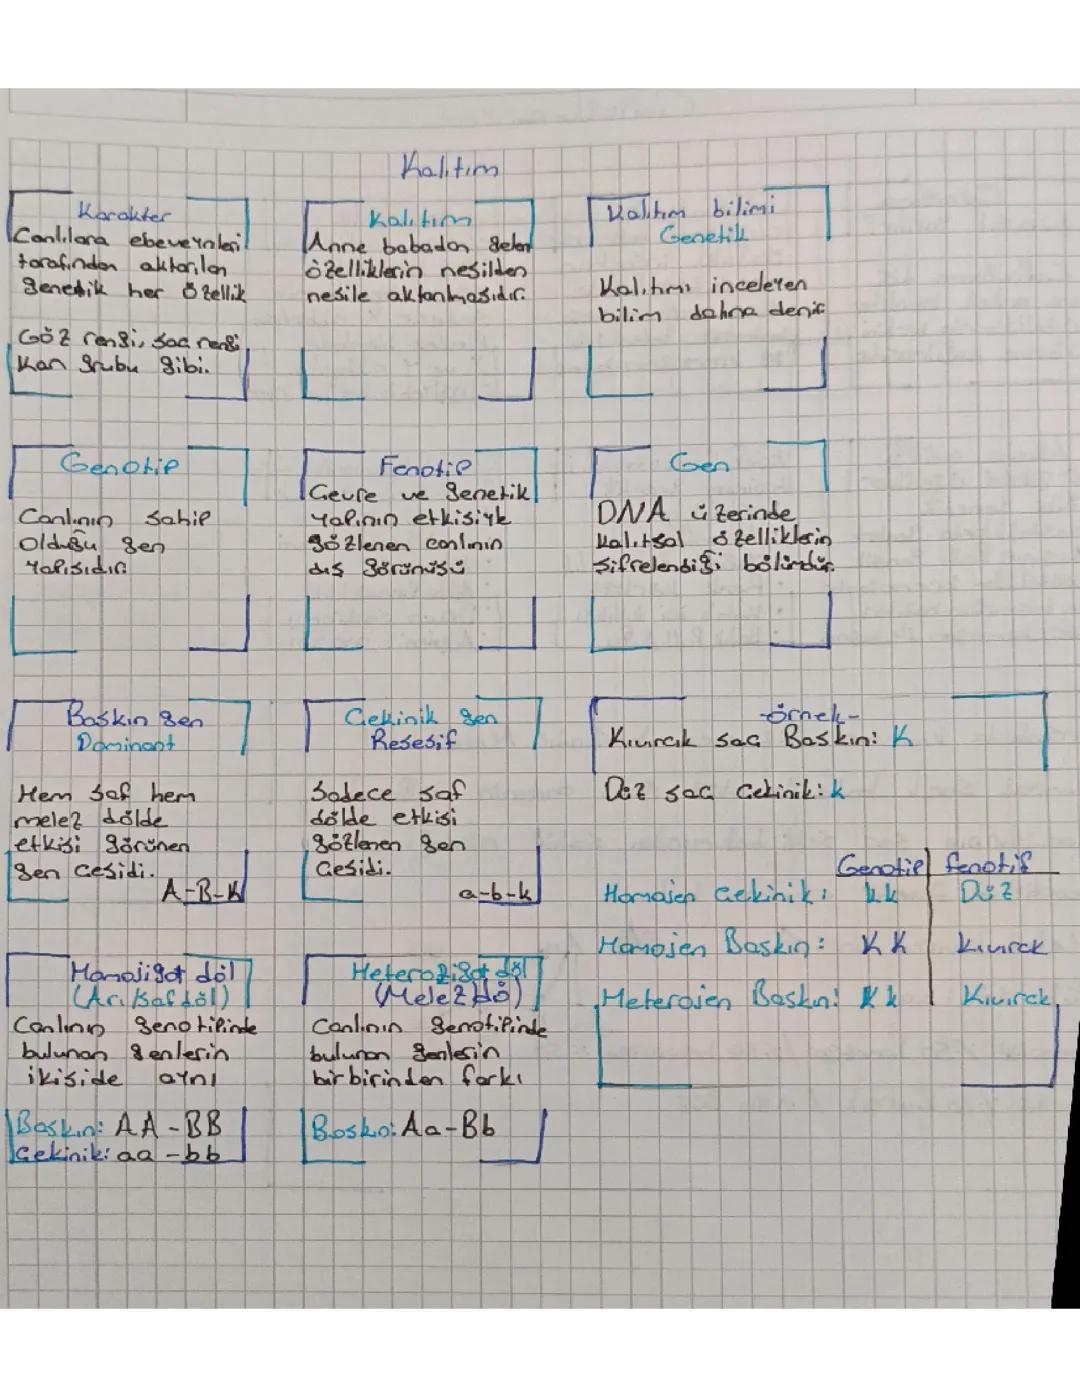 Kalıtım
Karakter
Canlılara ebeveynleri
tarafından aktarılan
genetik her özellik
Göz rengi, saç rengi
Kan grubu gibi.
Kalıtım
Anne babadan gelen
özelliklerin nesilden
nesile aktarılmasıdır.
Kalıtım bilimi
Genetik
Kalıtımı inceleyen
bilim dalına denir
Genotip
Canlının sahip
Olduğu gen
yapısıdır.
Fenotip
Çevre ve genetik
yapının etkisiyle
gözlenen canlının
dış görünüşü
Gen
DNA üzerinde
kalıtsal özelliklerin
şifrelendiği bölümdür.
Baskın gen
Dominant
Hem saf hem
melez dölde
etkisi görünen
gen çeşidi.
A-B-K
Çekinik gen
Resesif
Sadece saf
dölde etkisi
gözlenen gen
çeşidi.
a-b-k
-örnek-
Kıvırcık saç Baskın: K
Düz saç Çekinik: k
Genotip fenotip
Homojen çekinik: kk Düz
Homojen Baskın: KK Kıvırck
Heterojen Baskın: Kk Kıvırck
Homojigot döl
(Arı/Saf döl)
Canlının genotipinde
bulunan genlerin
ikiside aynı
Baskın: AA - BB
Çekinik: aa - bb
Heterozigot döl
(Melez dö)
Canlının genotipinde
bulunan genlerin
birbirinden farkı
Baskın: Aa-Bb